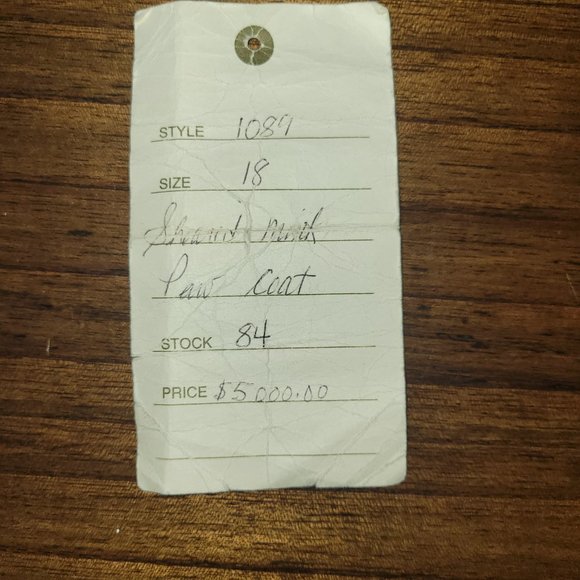 STYLE 1089
SIZE 18
mink
Paw coat
STOCK 84
PRICE $5000.00